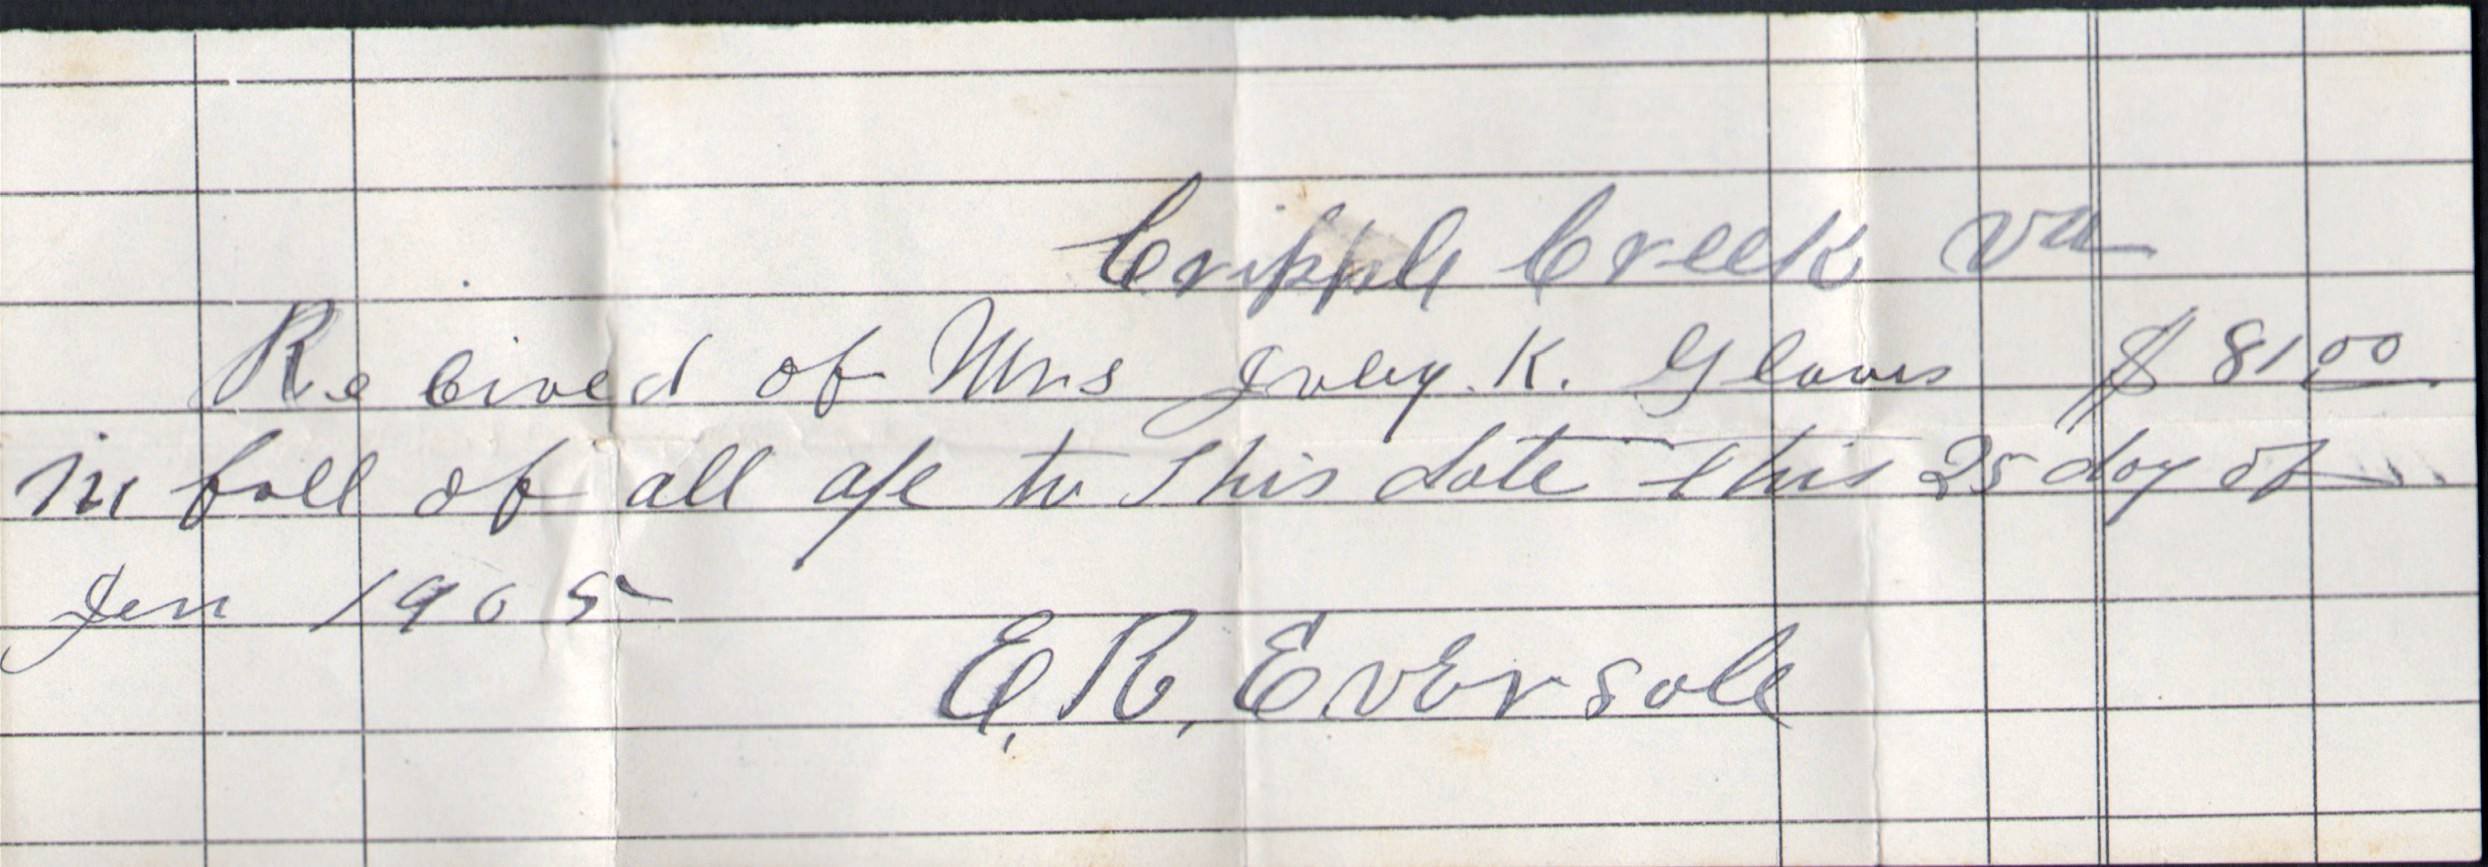 Cripple Creek Va
Recived of Mrs Ivey. K. Glaves $81.00
in foll of all a/c to This date this 25 day of
Jen 1905
E, R, Eversole